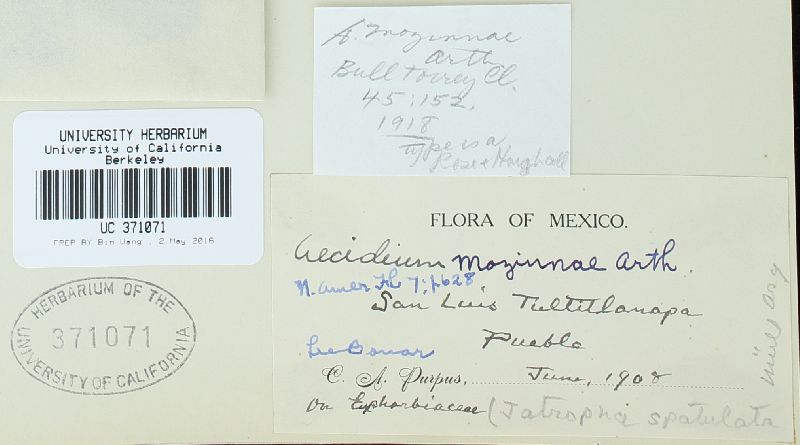 A. mozinnae
Arth
Bull Torrey Cl.
45:152.
1918
type is a
Rose & Hough coll
UNIVERSITY HERBARIUM
University of California
Berkeley
UC 371071
PREP BY Bin Wang , 2 May 2016
HERBARIUM OF THE
371071
UNIVERSITY OF CALIFORNIA
FLORA OF MEXICO.
Aecidium Mozinnae Arth.
N. Amer Fl 7:p628
San Luis Tultitlanapa
Puebla
Lee Bonar
C. A. Purpus, June, 1908
on Euphorbiaceae (Jatropha spatulata
Müll Arg